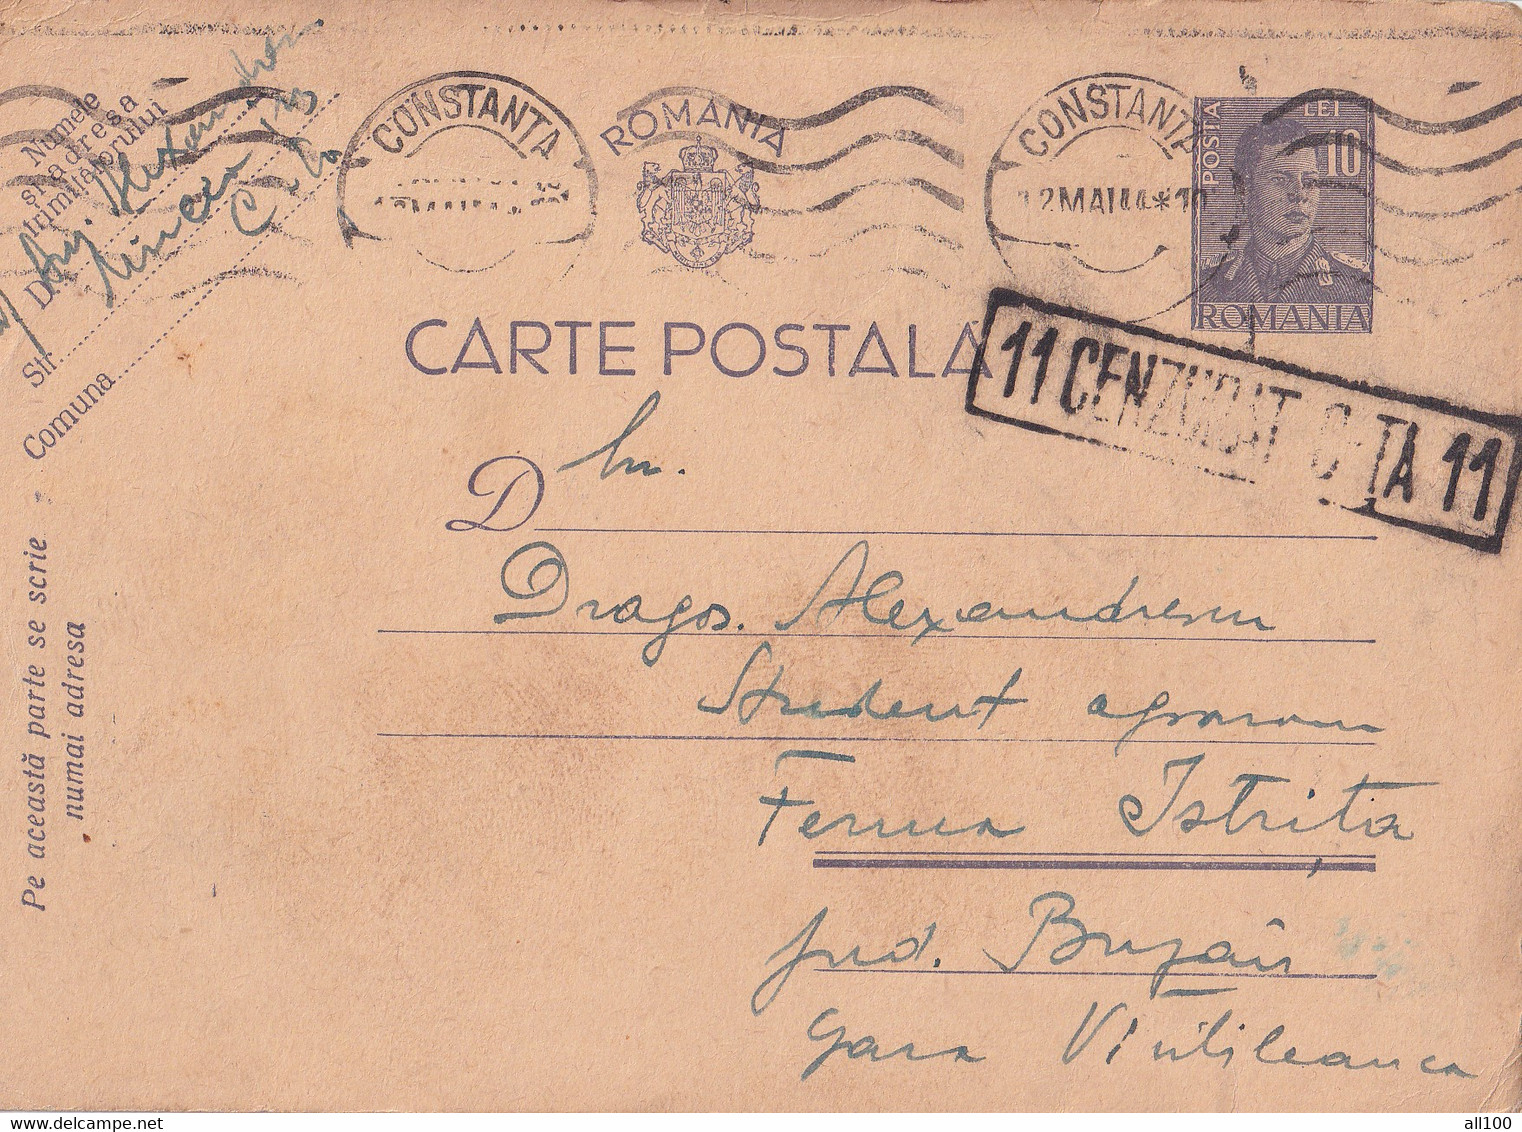 Numele
și adresa
trimițătorului
D
Str.
Comuna
CONSTANTA
ROMANIA
CONSTANTA
12MAI44*10
POSTA
LEI
10
ROMANIA
CARTE POSTALA
11 CENZURAT C-TA 11
Dlui.
Dragos. Alexandrescu
Student agronom
Ferma Istrița
jud. Buzău
gara Vintileanca
Pe această parte se scrie
numai adresa
all100